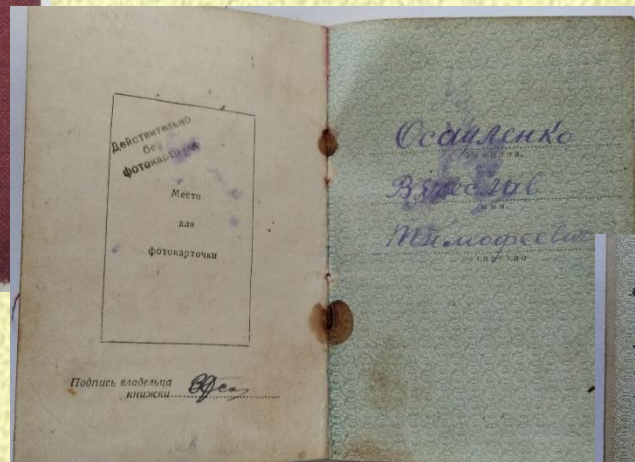 Действительно
без
фотокарточки
Место
для
фотокарточки
Подпись владельца
книжки
Осауленко
фамилия.
Вячеслав
имя.
Тимофеевич
отчество